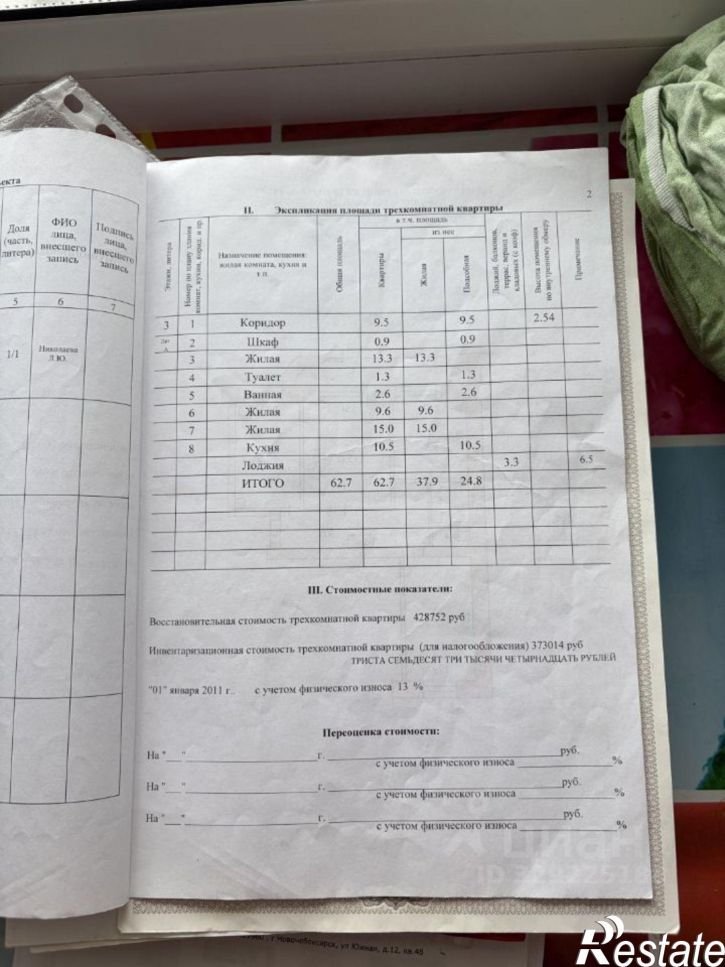 екта
Доля
(часть,
литера)
ФИО
лица,
внесшего
запись
Подпись
лица,
внесшего
запись
5 6 7
1/1 Николаева
Л.Ю.
2
II. Экспликация площади трехкомнатной квартиры
Этажи, литера
Номер по плану здания
комнат, кухни, корид. и пр.
Назначение помещения:
жилая комната, кухня и
т.п.
Общая площадь
в т.ч. площадь
из нее
Квартиры
Жилая
Подсобная
Лоджий, балконов,
террас, веранд и
кладовых (с коэф)
Высота помещения
по внутреннему обмеру
Примечание
3 1 Коридор 9.5 9.5 2.54
Лит
А 2 Шкаф 0.9 0.9
3 Жилая 13.3 13.3
4 Туалет 1.3 1.3
5 Ванная 2.6 2.6
6 Жилая 9.6 9.6
7 Жилая 15.0 15.0
8 Кухня 10.5 10.5
Лоджия 3.3 6.5
ИТОГО 62.7 62.7 37.9 24.8
III. Стоимостные показатели:
Восстановительная стоимость трехкомнатной квартиры 428752 руб
Инвентаризационная стоимость трехкомнатной квартиры (для налогообложения) 373014 руб
ТРИСТА СЕМЬДЕСЯТ ТРИ ТЫСЯЧИ ЧЕТЫРНАДЦАТЬ РУБЛЕЙ
"01" января 2011 г.. с учетом физического износа 13 %
Переоценка стоимости:
На "___"______________________ г. ______________________________руб.
с учетом физического износа ____________%
На "___"______________________ г. ______________________________руб.
с учетом физического износа ____________%
На "___"______________________ г. ______________________________руб.
с учетом физического износа ____________%
циан
г Новочебоксарск, ул Южная, д.12, кв.48
Restate